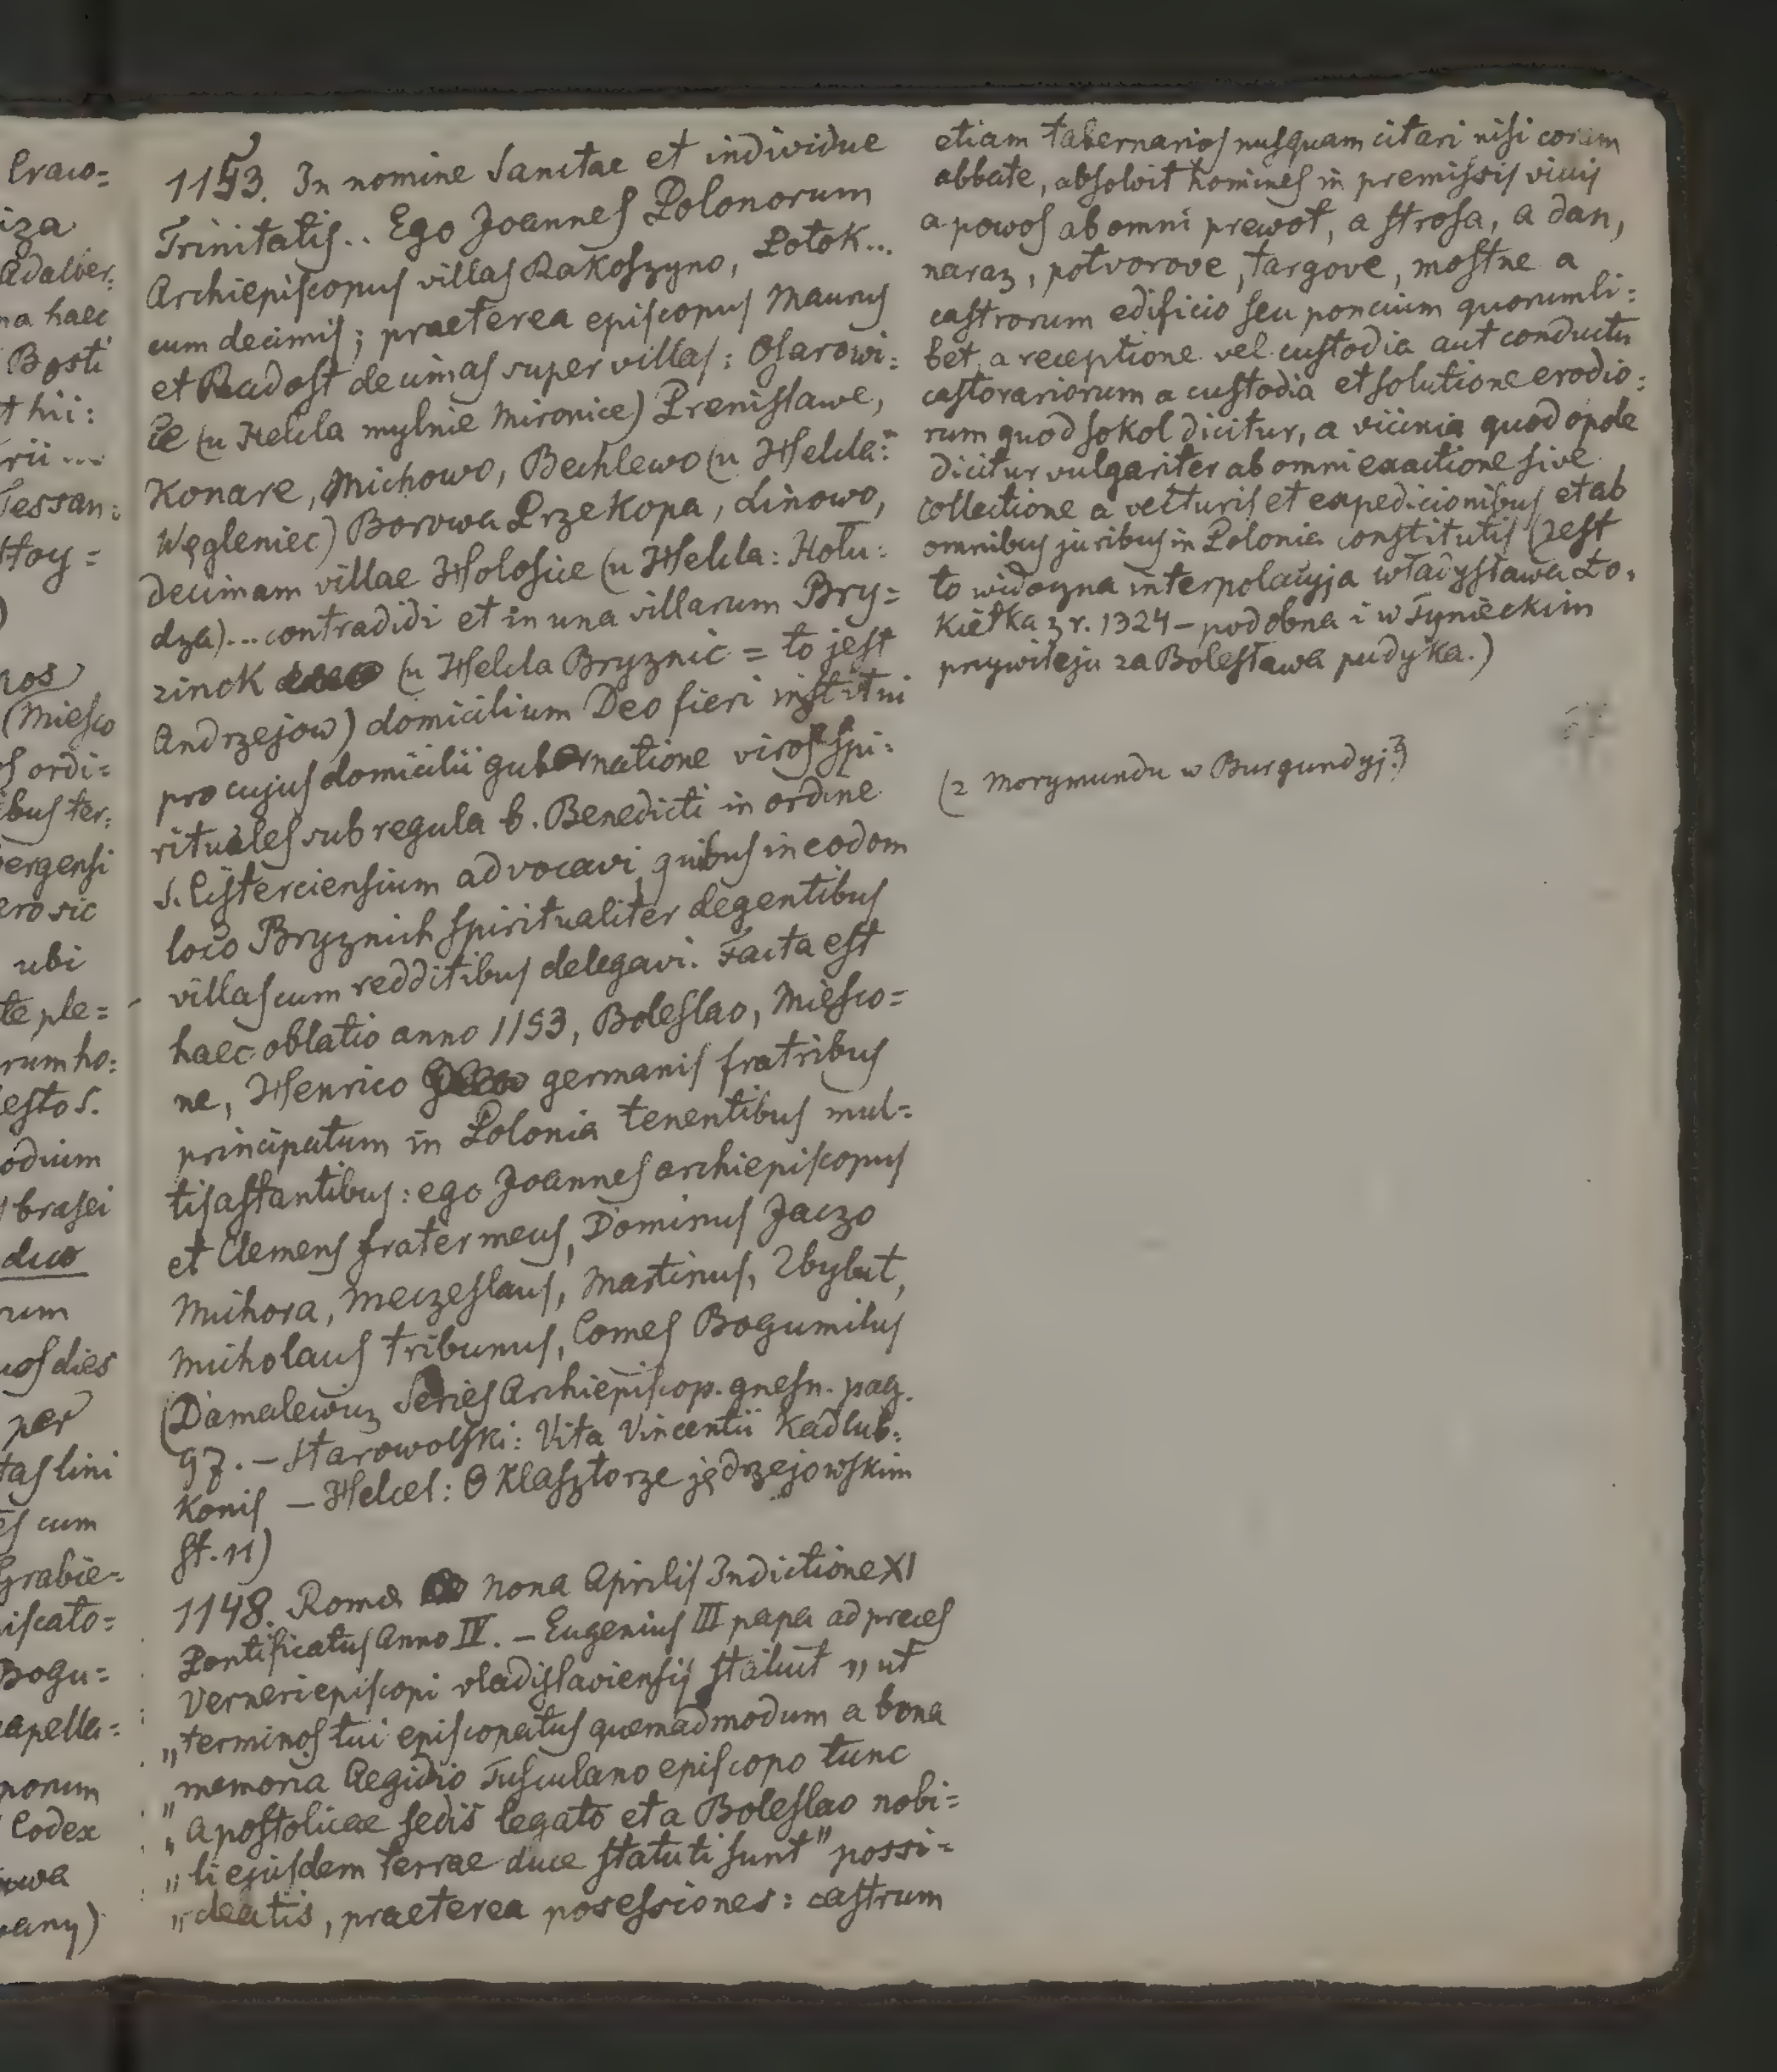 Craco=
iza
Adalber:
na haec
Bosti
t hii:
rii ...
Tessan:
Stoy =
)
nos
(Miesco
s ordi=
ibus ter:
bergensi
ero sic
ubi
te ple=
rum ho:
esto s.
odium
brasei
duo
rum
uos dies
per
tas lini
es cum
Grabie=
iscato=
Bogu=
capella=
norum
Codex
owa
wany)
1153. In nomine Sanctae et individue
Trinitatis.. Ego Joannes Polonorum
Archiepiscopus villas Rakoszyno, Potok...
cum decimis; praeterea episcopus Maurus
et Radost decimas super villas: Osarowi:
ce (u Helcla mylnie Mironice) Prenislawe,
Konare, Michowo, Bechlewo (u Helcla:
Węgleniec) Borowa Przekopa, Linowo,
decimam villae Holosice (u Helcla: Holu:
dza)... contradidi et in una villarum Bry=
zinck (u Helcla Bryznic = to jest
Andrzejow) domicilium Deo fieri institui
pro cujus domicilii gubernatione viros spi:
rituales sub regula b. Benedicti in ordine
S. Cisterciensium advocavi, quibus in eodom
loco Bryznich spiritualiter degentibus
villas cum redditibus delegavi. Facta est
haec oblatio anno 1153, Boleslao, Miesco=
ne, Henrico germanis fratribus
principatum in Polonia tenentibus mul=
tis astantibus: ego Joannes archiepiscopus
et Clemens frater meus, Dominus Jaczo
Michora, Meczeslaus, Martinus, Zbylut,
Micholaus tribunus, Comes Bogumilus
(Damalewicz Series Archiepiscop. gnesn. pag.
97. – Starowolski: Vita Vincentii Kadlub:
konis – Helcel: O Klasztorze jędrzejowskim
st. 11)
1148. Roma nona Aprilis Indictione XI
Pontificatus Anno IV. – Eugenius III papa ad preces
Verneri episcopi vladislaviensis statuit „ut
„terminos tui episcopatus quemadmodum a bona
„memoria Aegidio Tusculano episcopo tunc
„apostolicae sedis legato et a Boleslao nobi=
„li ejusdem terrae duce statuti sunt" possi=
„deatis, praeterea posessiones: castrum
etiam tabernarios nusquam citari nisi coram
abbate, absolvit homines in premissis vicis
a powos ab omni prewot, a strosa, a dan,
naraz, potvorove, targove, mostne a
castrorum edificio seu poncium quorumli:
bet, a receptione vel custodia aut conductu
castorariorum a custodia et solutione erodio:
rum quod sokol dicitur, a vicinia quod opole
dicitur vulgariter ab omni exactione sive
collectione a vecturis et expedicionibus et ab
omnibus juribus in Polonia constitutis (Jest
to widoczna interpolacyja władysława Ło.
Kietka z r. 1324 – podobna i w Tynieckim
przywileju za Bolesława pudyka.)
(z Morymundu w Burgundyj?)